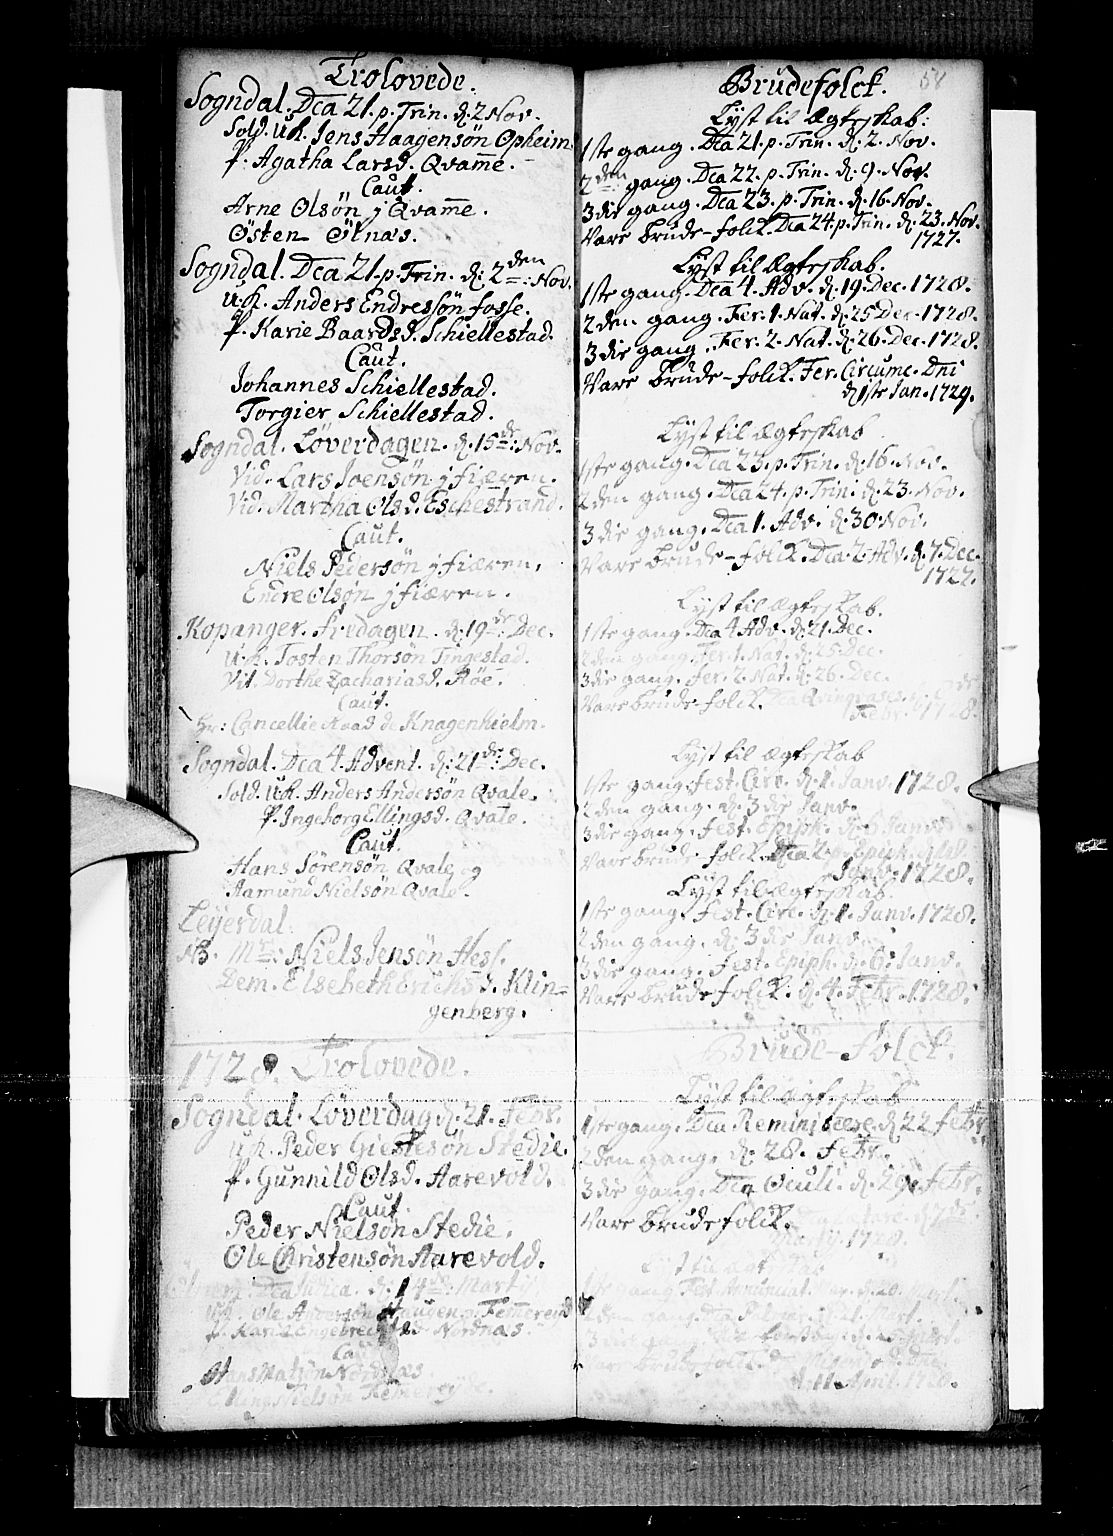 Trolovede.
Sogndal. Dca 21. p. Trin. d. 2 Nov.
Sold. u.k. Jens Haagensøn Opheim.
p. Agatha Larsd. Qvame.
Caut.
Arne Olsøn j Qvam̅e.
Østen Ølnæs.
Sogndal. Dca 21. p. Trin. d: 2den: Nov.
u.k. Anders Endressøn fosse.
p. Karie Baardsd. Schiellestad.
Caut.
Johannes Schiellestad.
Torgier Schiellestad.
Sogndal. Løverdagen. d. 15de: Nov.
Vid. Lars Joensøn j fiæren.
Vid. Martha Olsd. Eschestrand.
Caut.
Niels Pedersøn j fiæren.
Endre Olsøn j fiæren.
Kopanger. fredagen. d. 19de: Dec.
u.k. Tosten Thorsøn Tingestad.
Vid. Dorthe Zachariasd. Røe.
Caut.
Hr: Cancellie Raad de Knagenhielm.
Sogndal. Dca 4. Advent. d: 21de: Dec.
Sold. u.k. Anders Andersøn Qvale.
p. Ingeborg Ellingsd. Qvale.
Caut.
Hans Sørensøn Qvale og
Aamund Nielsøn Qvale.
Leyerdal.
NB. Mr: Niels Jensøn Hess.
Dem. Elsebeth Erichsd. Klin=
genberg.
1728. Trolovede.
Sogndal. Løverdag d. 21. Febr.
u.k. Peder Giestesøn Stedie.
p. Gunnild Olsd. Aarevold.
Caut.
Peder Nielsøn Stedie.
Ole Christensøn Aarevold.
Dca Judica. d. 14de Martij.
Ole Andersøn Haugen j Fem̅ereid
p. Kari Engebrechtsd. Nordnæs.
Caut.
Hans Matsøn Nordnæs.
Nielsøn
Brudefolck. 58
Lyst til Ægteskab:
1ste gang. Dca 21. p. Trin. d. 2. Nov.
2den gang. Dca 22. p. Trin. d. 9. Nov.
3die gang. Dca 23. p. Trin. d. 16. Nov.
Vare brude-folck. Dca 24. p. Trin. d. 23. Nov.
1727.
Lyst til Ægteskab.
1ste gang. Dca 4. Adv. d. 19. Dec. 1728.
2den gang. Fer. 1. Nat. d. 25 Dec. 1728.
3die gang. Fer. 2. Nat. d. 26. Dec. 1728.
Vare brude-folck. Fer. Circumc. Dni
d. 1ste Jan. 1729.
Lyst til Ægteskab
1ste gang. Dca 23. p. Trin. d. 16. Nov.
2den gang. Dca 24. p. Trin. d. 23. Nov.
3die gang. Dca 1. Adv. d. 30. Nov.
Vare brude-folck. Dca. 2. Adv. d. 7. Dec.
1727.
Lyst til Ægteskab.
1ste gang. Dca 4 Adv. d. 21. Dec.
2den gang. Fer. 1. Nat. d. 25 Dec.
3die gang. Fer. 2. Nat. d. 26. Dec.
Vare brude-folck. Dca Qvinqvages.
Febr. 1728.
Lyst til Ægteskab
1ste gang. Fest. Circ. d. 1. Janv. 1728.
2den gang. d. 3die Janv.
3die gang. Fest. Epiph. d. 6 Janv.
Vare brude-folck. Dca 2. p. Epiph.
Janv. 1728.
Lyst til Ægteskab.
1ste gang. Fest. Circ. d. 1. Janv. 1728.
2den gang. d. 3die Janv.
3die gang. Fest. Epiph. d. 6. Janv.
Vare brudefolck. d. 4. Febr. 1728.
Brude-folck.
Lyst til Ægteskab
1ste gang. Dca Reminiscere. d. 22 Febr.
2den gang. d. 28. Febr.
3die gang. Dca Oculi. d. 29. Febr.
Vare brudefolck.
1728.
Lyst til Ægteskab
1ste gang. Fest. Annunciat.
2den gang. Dca Palmar.
3die gang.
Vare brudefolck.
d. 11. April. 1728.